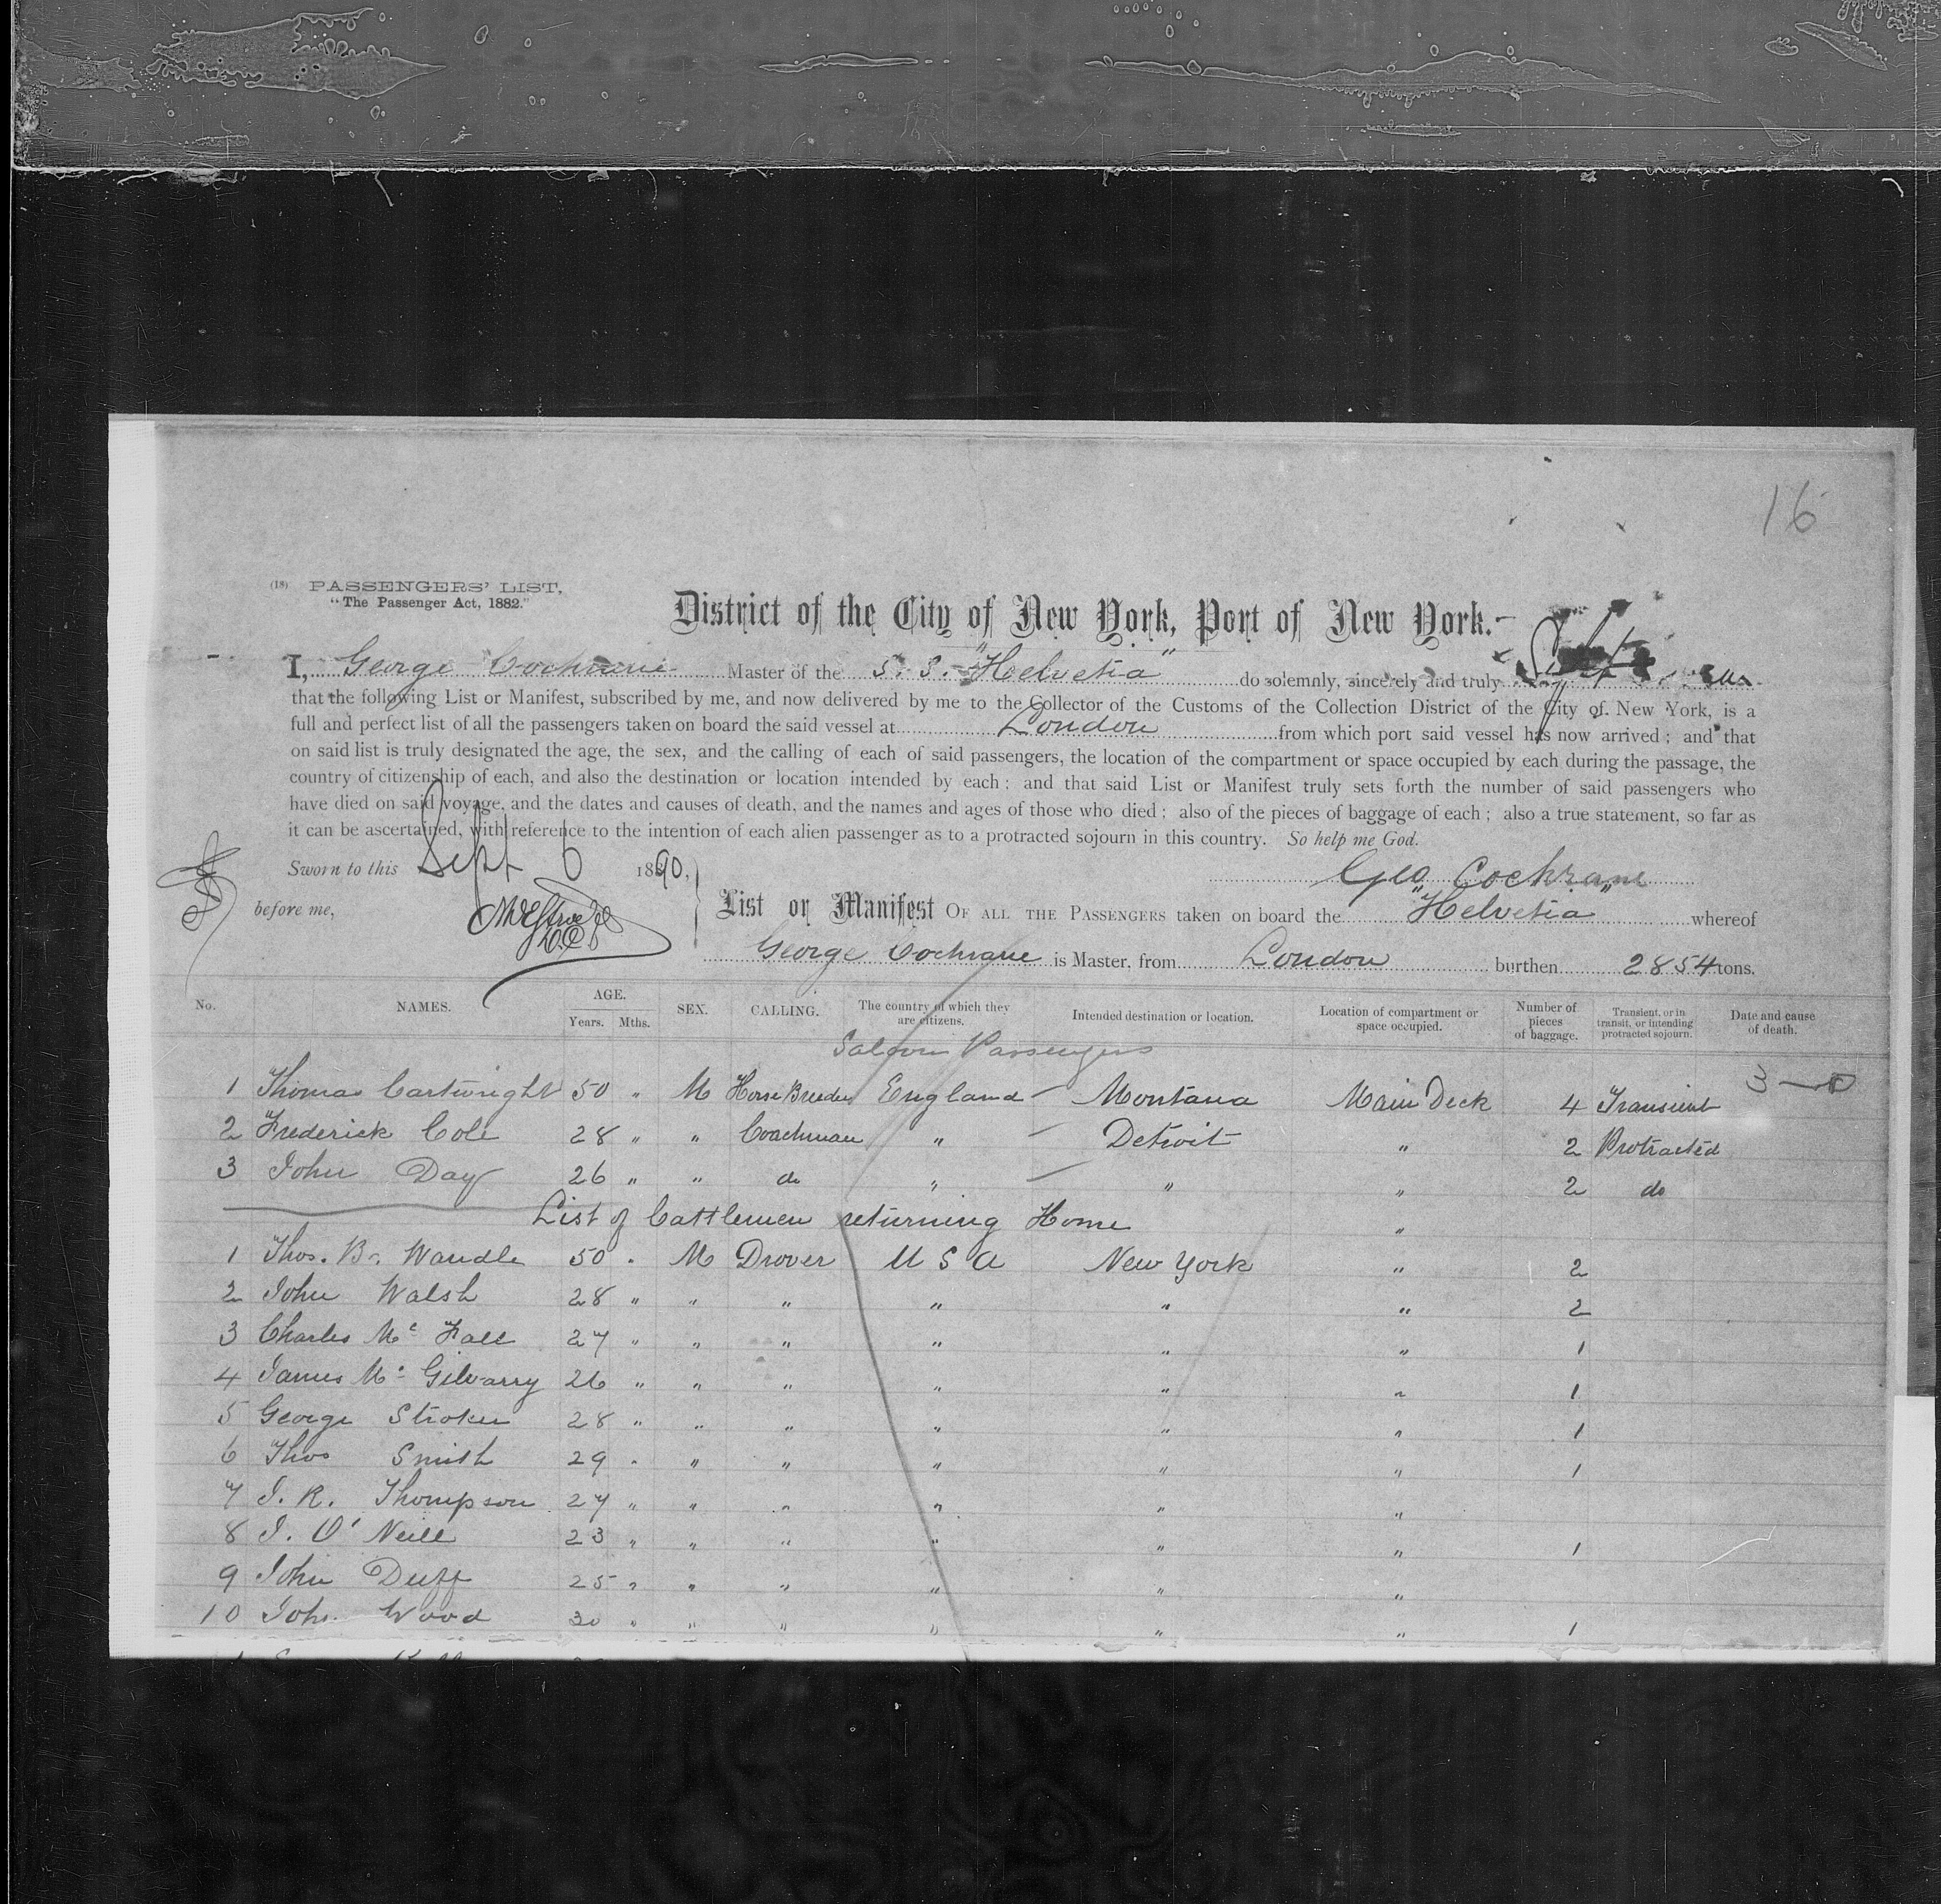 16
(18) PASSENGERS' LIST,
"The Passenger Act, 1882."
District of the City of New York, Port of New York.
I, George Cochrane Master of the S. S. "Helvetia" do solemnly, sincerely and truly
that the following List or Manifest, subscribed by me, and now delivered by me to the Collector of the Customs of the Collection District of the City of New York, is a
full and perfect list of all the passengers taken on board the said vessel at London from which port said vessel has now arrived; and that
on said list is truly designated the age, the sex, and the calling of each of said passengers, the location of the compartment or space occupied by each during the passage, the
country of citizenship of each, and also the destination or location intended by each; and that said List or Manifest truly sets forth the number of said passengers who
have died on said voyage, and the dates and causes of death, and the names and ages of those who died; also of the pieces of baggage of each; also a true statement, so far as
it can be ascertained, with reference to the intention of each alien passenger as to a protracted sojourn in this country. So help me God.
Sworn to this Sept 6 1890, Geo Cochrane
before me, List or Manifest OF ALL THE PASSENGERS taken on board the "Helvetia" whereof
George Cochrane is Master, from London burthen 2854 tons.
No. NAMES. AGE. Years. Mths. SEX. CALLING. The country of which they are citizens. Intended destination or location. Location of compartment or space occupied. Number of pieces of baggage. Transient, or in transit, or intending protracted sojourn. Date and cause of death.
Saloon Passengers
1 Thomas Cartwright 50 " M Horse Breeder England Montana Main Deck 4 Transient
2 Frederick Cole 28 " " Coachman " Detroit " 2 Protracted
3 John Day 26 " " do " " " 2 do
List of Cattlemen returning Home "
1 Thos. Bc. Wandle 50 " M Drover U S A New York " 2
2 John Walsh 28 " " " " " " 2
3 Charles Mc Fall 27 " " " " " " 1
4 James Mc Gilvarry 26 " " " " " " 1
5 George Stroker 28 " " " " " " 1
6 Thos Smith 29 " " " " " " 1
7 J. R. Thompson 27 " " " " " "
8 J. O' Neill 23 " " " " " " 1
9 John Duff 25 " " " " " "
10 Joh. Wood 30 " " " " " " 1